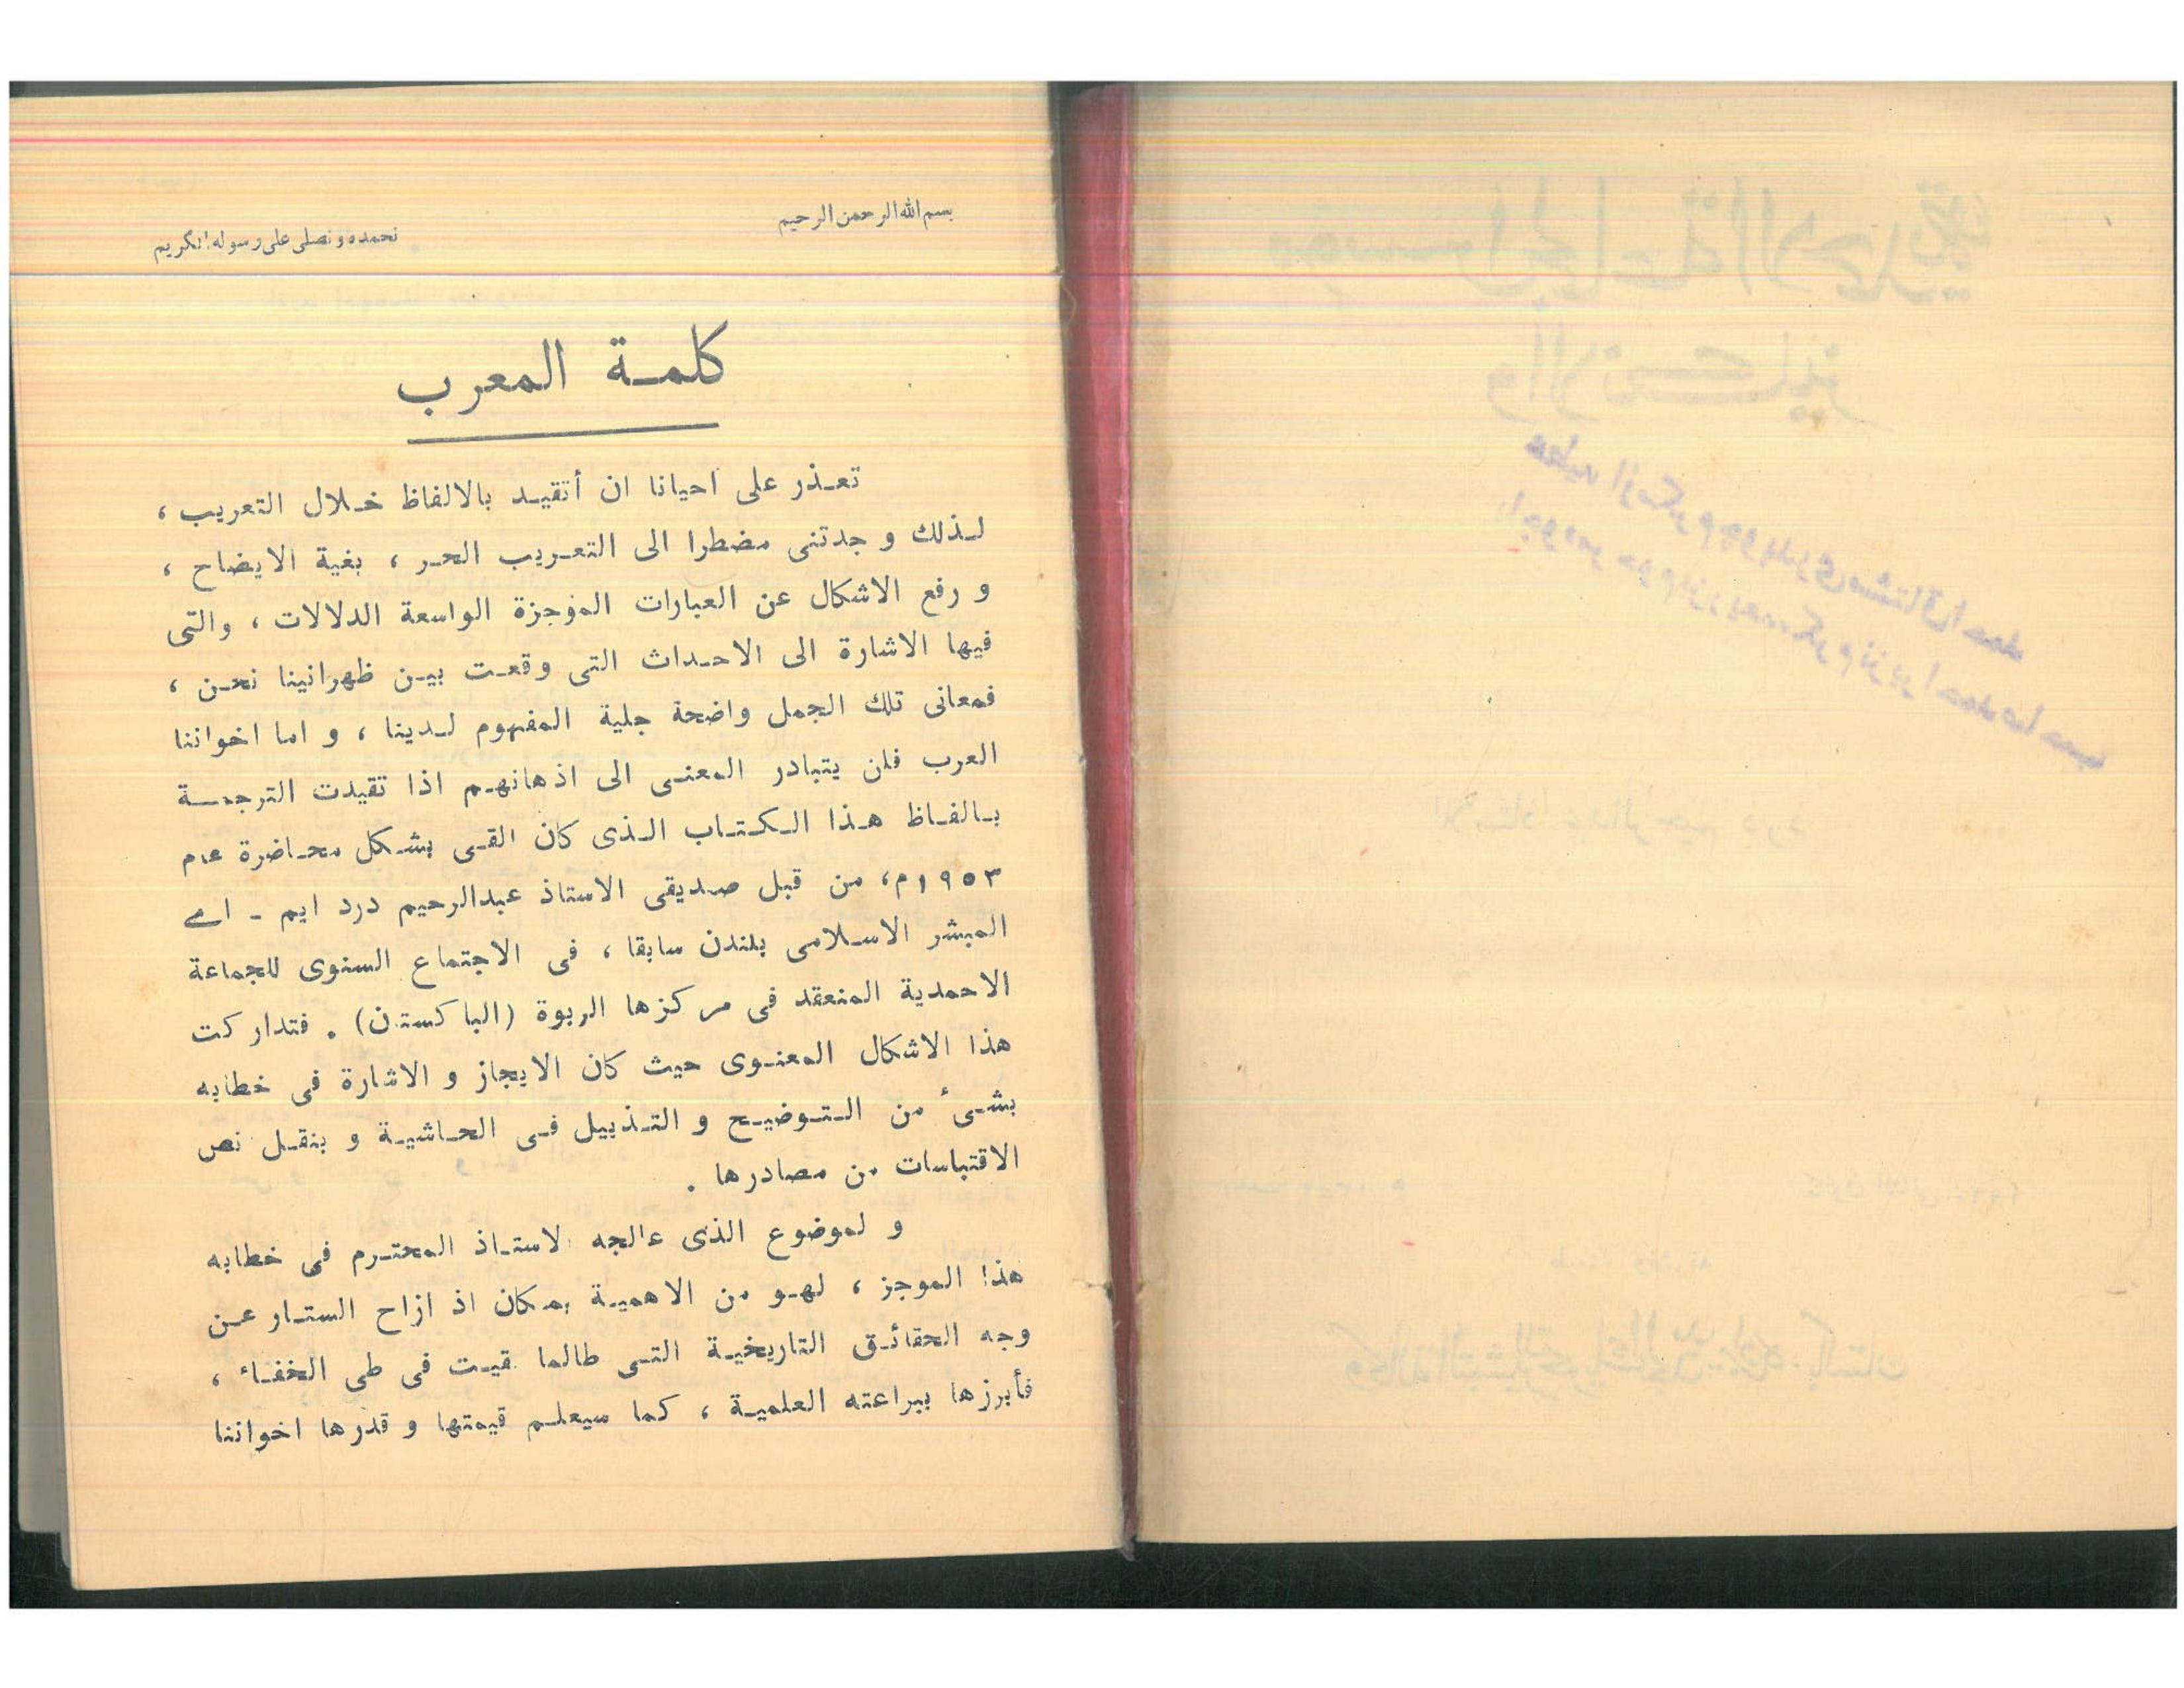 بسم الله الرحمن الرحيم
نحمده و نصلى على رسوله الكريم
كلمة المعرب
تعذر على احيانا ان أتقيد بالالفاظ خلال التعريب ،
لذلك و جدتنى مضطرا الى التعريب الحر ، بغية الايضاح ،
و رفع الاشكال عن العبارات الموجزة الواسعة الدلالات ، والتى
فيها الاشارة الى الاحداث التى وقعت بين ظهرانينا نحن ،
فمعانى تلك الجمل واضحة جلية المفهوم لدينا ، و اما اخواننا
العرب فلن يتبادر المعنى الى اذهانهم اذا تقيدت الترجمة
بالفاظ هذا الكتاب الذى كان القى بشكل محاضرة عام
١٩٥٣م، من قبل صديقى الاستاذ عبدالرحيم درد ايم - اے
المبشر الاسلامى بلندن سابقا ، فى الاجتماع السنوى للجماعة
الاحمدية المنعقد فى مركزها الربوة (الباكستن) . فتداركت
هذا الاشكال المعنوى حيث كان الايجاز و الاشارة فى خطابه
بشىء من التوضيح و التذييل فى الحاشية و بنقل نص
الاقتباسات من مصادرها .
و لموضوع الذى عالجه لاستاذ المحترم فى خطابه
هذا الموجز ، لهو من الاهمية بمكان اذ ازاح الستار عن
وجه الحقائق التاريخية التى طالما قيت فى طى الخفاء ،
فأبرزها ببراعته العلمية ، كما سيعلم قيمتها و قدرها اخواننا